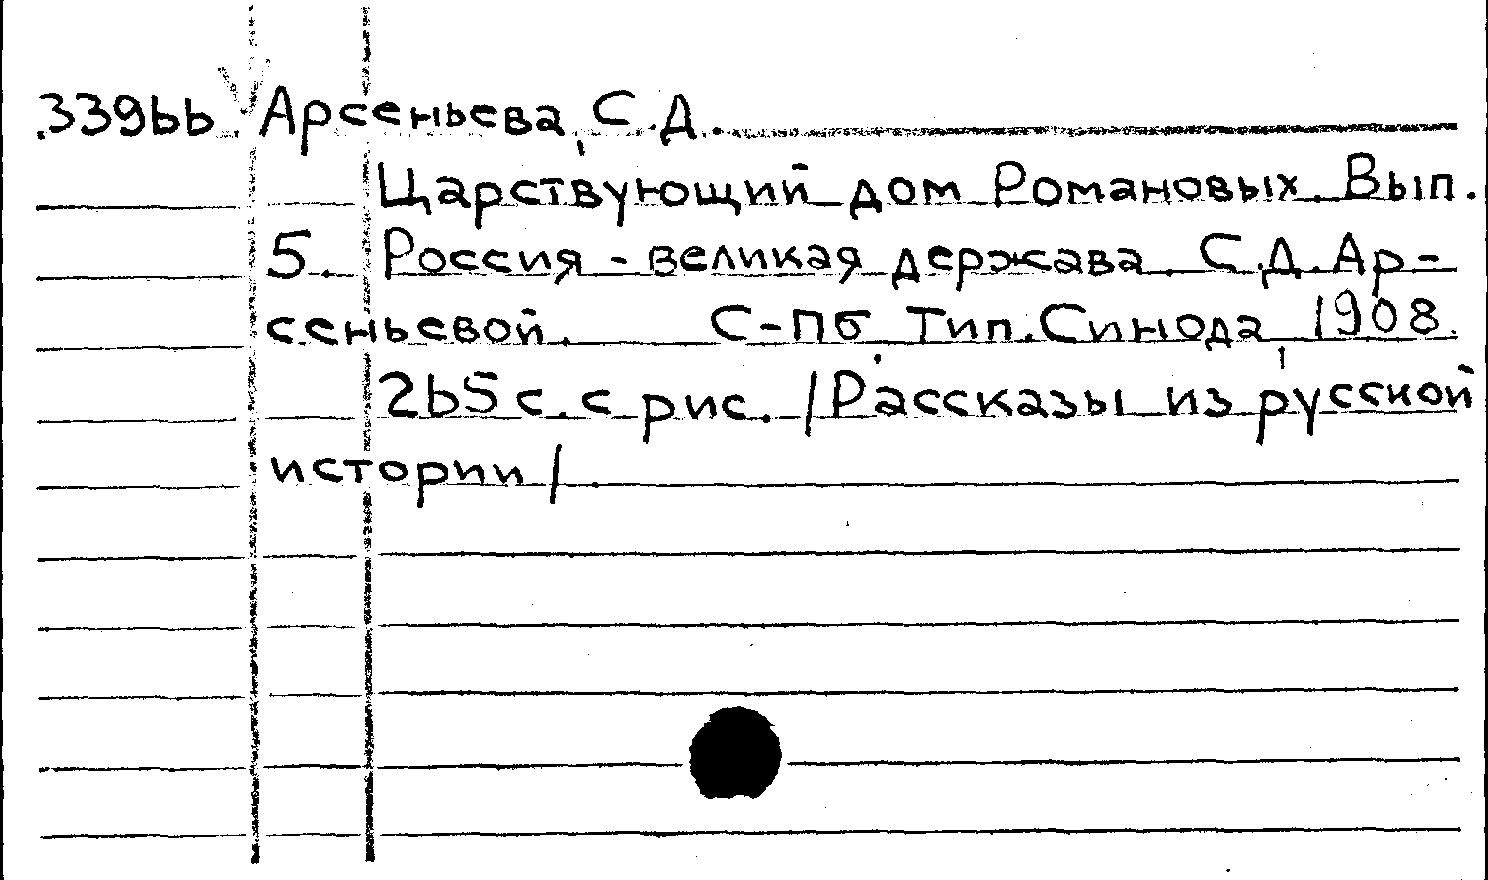 33966 Арсеньева, С.Д.
Царствующий дом Романовых. Вып.
5. Россия - великая держава. С.Д. Ар-
сеньевой. С-Пб. Тип. Синода, 1908.
265 с. с рис. /Рассказы из русской
истории/.